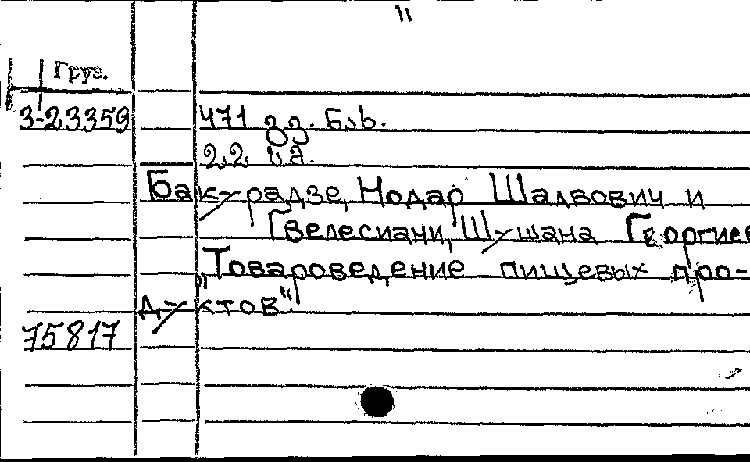 Груз.
3-23359 471 გვ.
Бакурадзе, Нодар Шалвович и
Гвелесиани, Шушана Георгиев
"Товароведение пищевых про-
дуктов"
75817